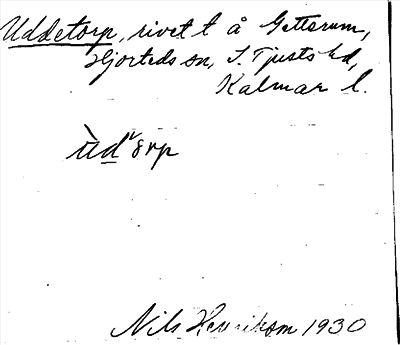 Uddetorp, rivet t å Gettsrum,
Hjorteds sn, S. Tjusts hd,
Kalmar l.
Nils Henrikson 1930